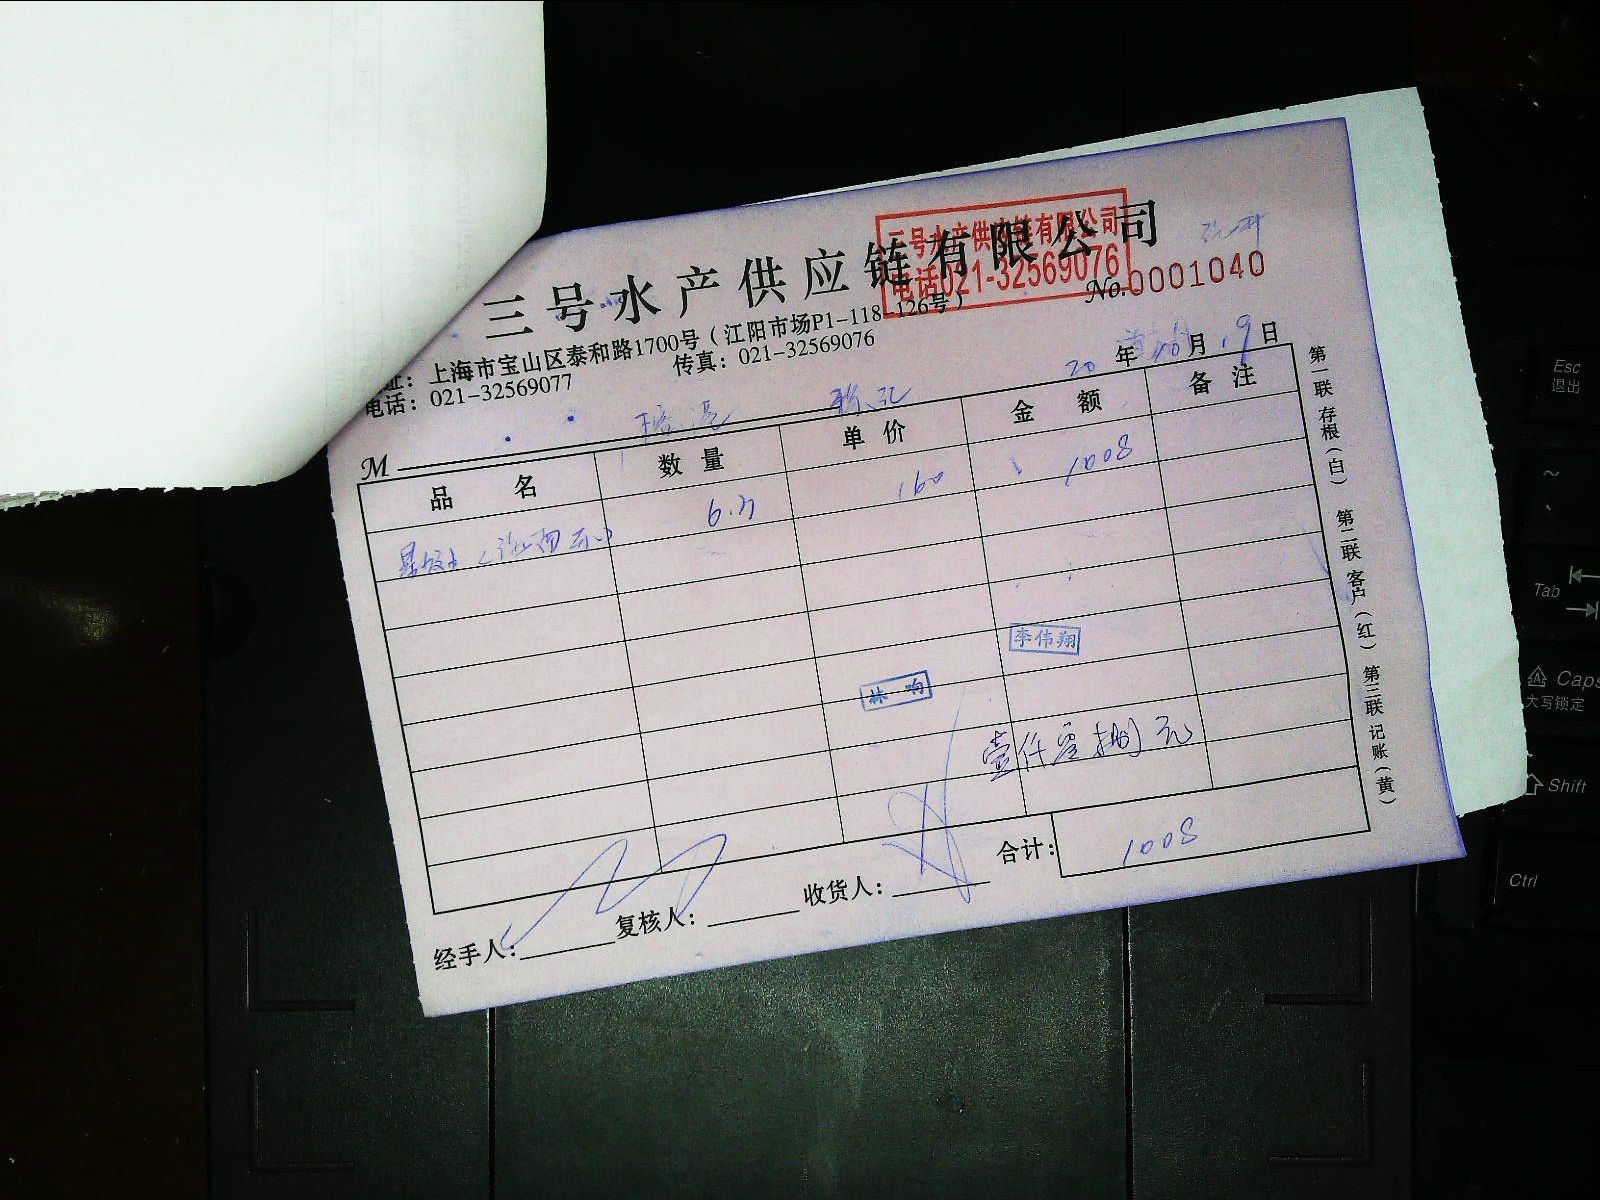 三号水产供应链有限公司
三号水产供应链有限公司
电话021-32569076
No.0001040
址：上海市宝山区泰和路1700号（江阳市场P1-118-126号）
电话：021-32569077 传真：021-32569076
20 年 月 19 日
M
品名 数量 单价 金额 备注
6.3 160 1008
李伟翔
林响
壹仟零捌元
合计： 1008
经手人： 复核人： 收货人：
第一联 存根（白） 第二联 客户（红） 第三联 记账（黄）
Esc
退出
~
Tab
Caps
大写锁定
Shift
Ctrl